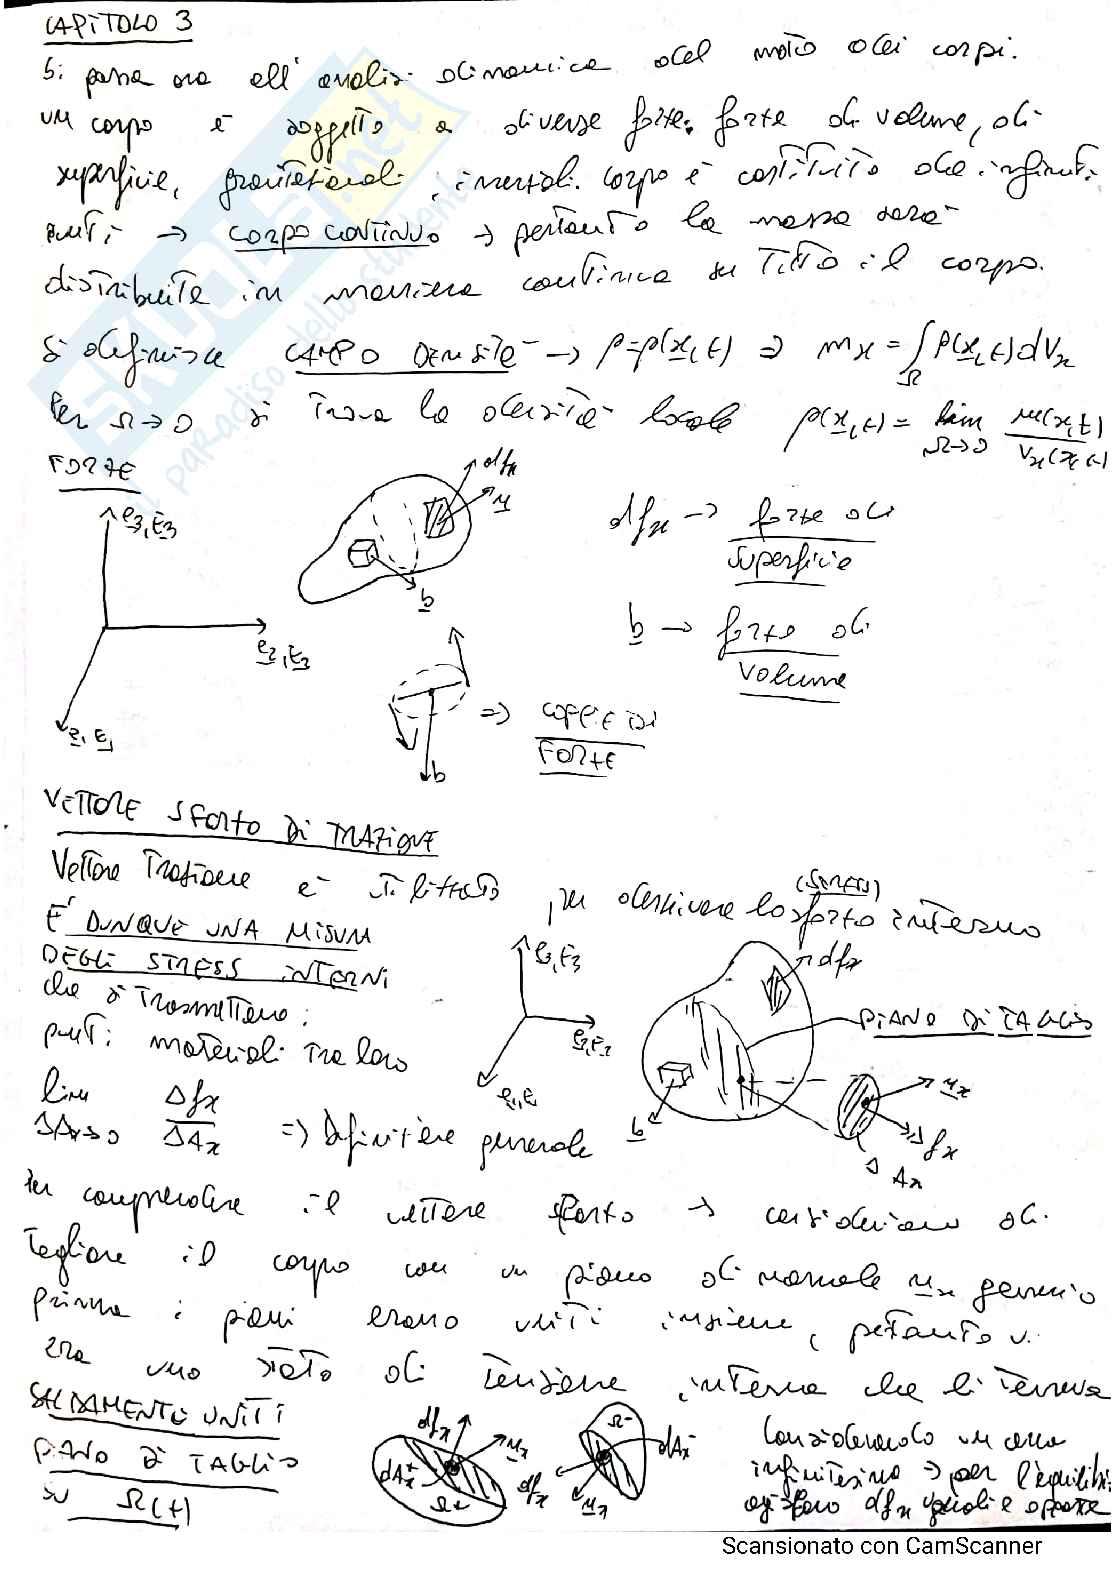 CAPITOLO 3
Si passa ora all'analisi dinamica del moto dei corpi.
un corpo è soggetto a diverse forze: forze di volume, di
superficie, gravitazionali, inerziali. corpo è costituito da infiniti
punti → CORPO CONTINUO → pertanto la massa sarà
distribuita in maniera continua su tutto il corpo.
Si definisce CAMPO DENSITÀ → ρ=ρ(x,t) ⇒ mx = ∫Ω ρ(x,t) dVx
Per Ω→0 si trova la densità locale ρ(x,t) = lim Ω→0 m(x,t) / Vx(x,t)
FORZE
e3,E3
dfx
n
b
e2,E2
e1,E1
dfx → forze di superficie
b → forze di volume
b
⇒ COPPIE DI FORZE
VETTORE SFORZO DI TRAZIONE
Vettore trazione è utilizzato per descrivere lo sforzo interno
(STRESS)
È DUNQUE UNA MISURA
DEGLI STRESS INTERNI
che si trasmettono i
punti materiali tra loro
lim ΔAx→0 Δfx / ΔAx ⇒ Definizione generale
e3,E3
e2,E2
e1,E1
dfx
PIANO DI TAGLIO
b
nx
Δfx
ΔAx
Per comprendere il vettore sforzo → consideriamo di
tagliare il corpo con un piano di normale nx generico
prima i piani erano uniti insieme, pertanto vi
era uno stato di tensione interna che li teneva
SALDAMENTE UNITI
PIANO DI TAGLIO
su Ω(t)
dfx
nx
dAx+
Ω+
Ω-
dAx-
dfx
nx
Considerando un'area
infinitesima ⇒ per l'equilibrio
dfx uguali e opposte
Scansionato con CamScanner
SKUOLA.net
il paradiso dello studente